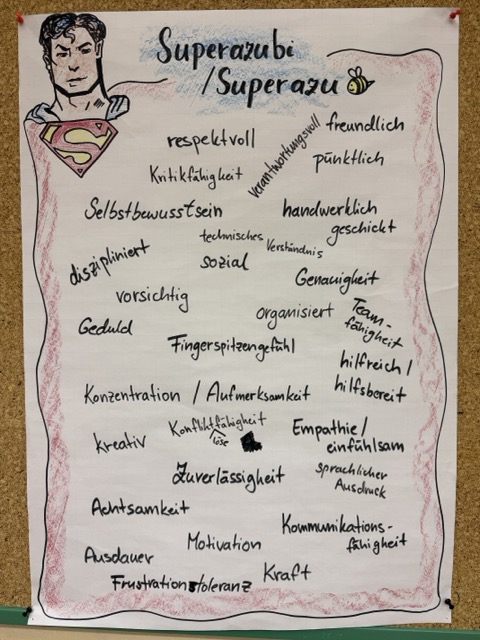 Superazubi
/Superazu
respektvoll
verantwortungsvoll
freundlich
Kritikfähigkeit
pünktlich
Selbstbewusstsein
handwerklich
geschickt
technisches
Verständnis
diszipliniert
sozial
Genauigkeit
vorsichtig
organisiert
Team-
fähigkeit
Geduld
Fingerspitzengefühl
hilfreich /
hilfsbereit
Konzentration / Aufmerksamkeit
Konfliktfähigkeit
löse
kreativ
Empathie /
einfühlsam
Zuverlässigkeit
sprachlicher
Ausdruck
Achtsamkeit
Kommunikations-
fähigkeit
Motivation
Ausdauer
Kraft
Frustrationstoleranz